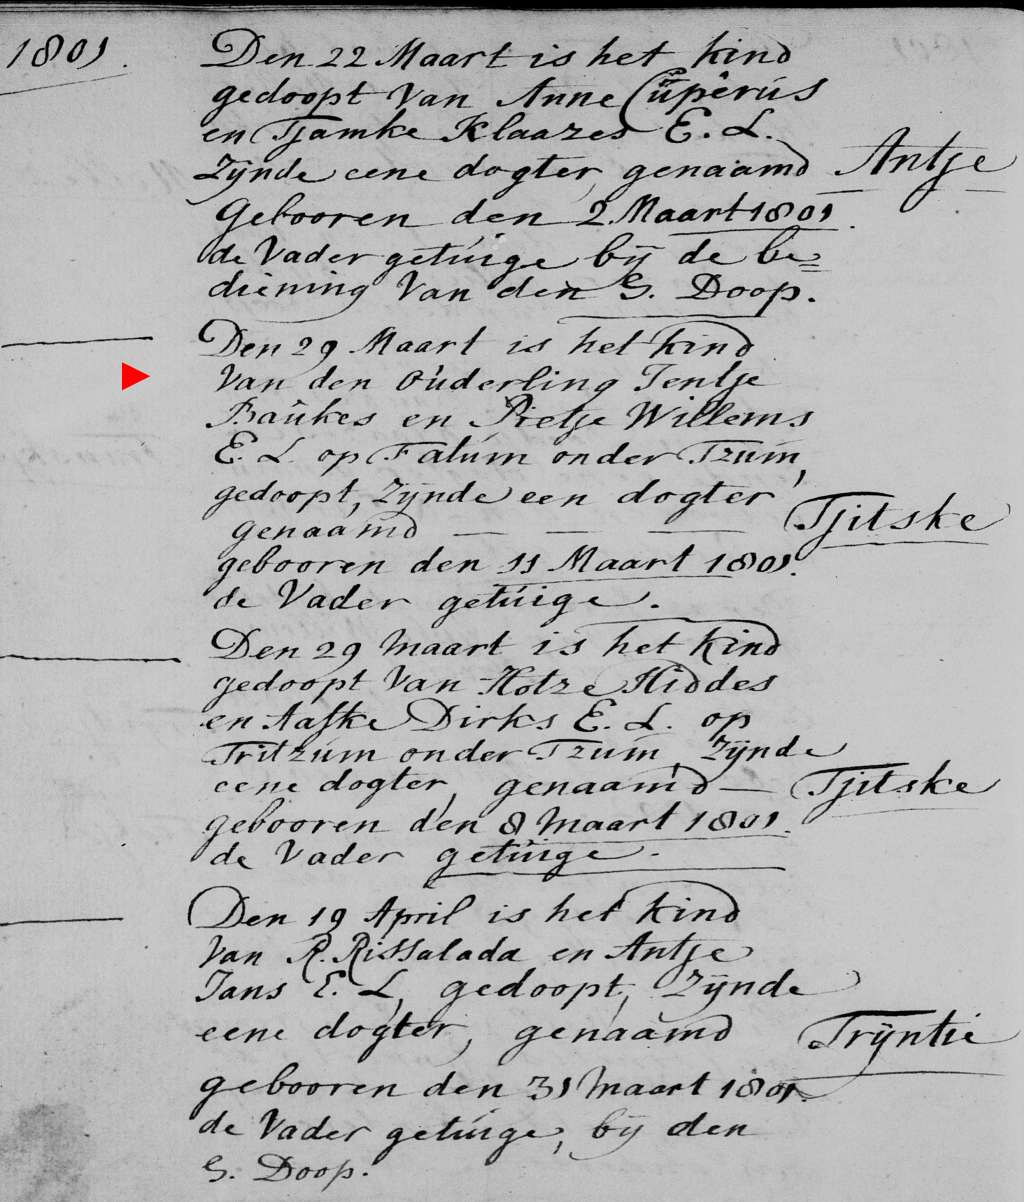 1801.
Den 22 Maart is het kind
gedoopt van Anne Cúperús
en Tjamke Klaazes E. L.
Zÿnde eene dogter, genaamd Antje
Gebooren den 2 Maart 1801.
de Vader getúige bÿ de be=
diening van den H. Doop.
Den 29 Maart is het kind
van den Oúderling Jentje
Baúkes en Pietje Willems
E. L. op Fatúm onder Tzúm,
gedoopt, Zÿnde een dogter,
genaamd — — — Tjitske
gebooren den 11 Maart 1801.
de Vader getúige.
Den 29 Maart is het kind
gedoopt van Hotze Hiddes
en Aafke Dirks E. L. op
Tritzúm onder Tzúm, Zÿnde
eene dogter, genaamd — Tjitske
gebooren den 8 Maart 1801.
de Vader getúige.
Den 19 April is het kind
van R. Rissalada en Antje
Jans E. L, gedoopt, Zÿnde
eene dogter, genaamd Trÿntie
gebooren den 31 Maart 1801.
de Vader getúige, bÿ den
H. Doop.